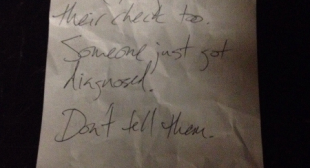 their check too.
Someone just got
diagnosed.
Don't tell them.